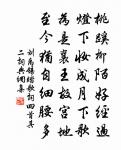 桃蹊柳陌好經過
燈下妝成月下歌
為是襄王故宮地
至今猶自細腰多
劉禹錫踏歌詞四首其
二詞典網集